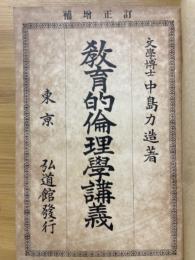 訂正増補
文學博士中島力造著
教育的倫理學講義
東京 弘道館發行